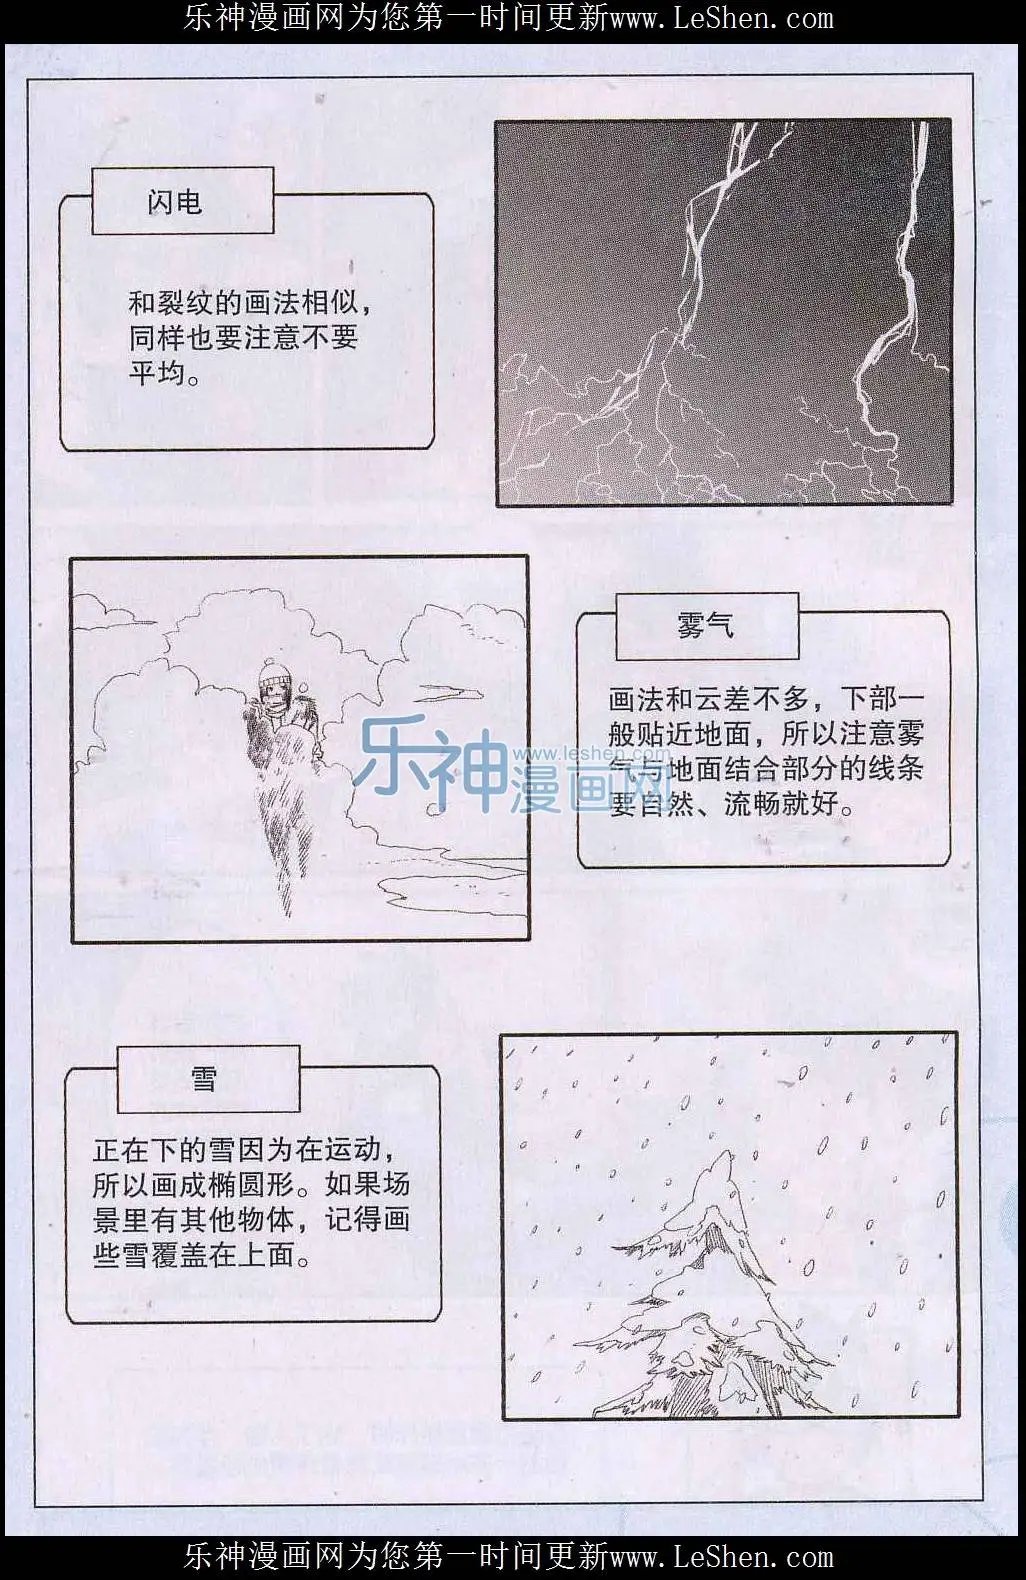 乐神漫画网为您第一时间更新www.LeShen.com
闪电
和裂纹的画法相似，
同样也要注意不要
平均。
雾气
画法和云差不多，下部一
般贴近地面，所以注意雾
气与地面结合部分的线条
要自然、流畅就好。
乐神漫画网
www.leshen.com
雪
正在下的雪因为在运动，
所以画成椭圆形。如果场
景里有其他物体，记得画
些雪覆盖在上面。
乐神漫画网为您第一时间更新www.LeShen.com